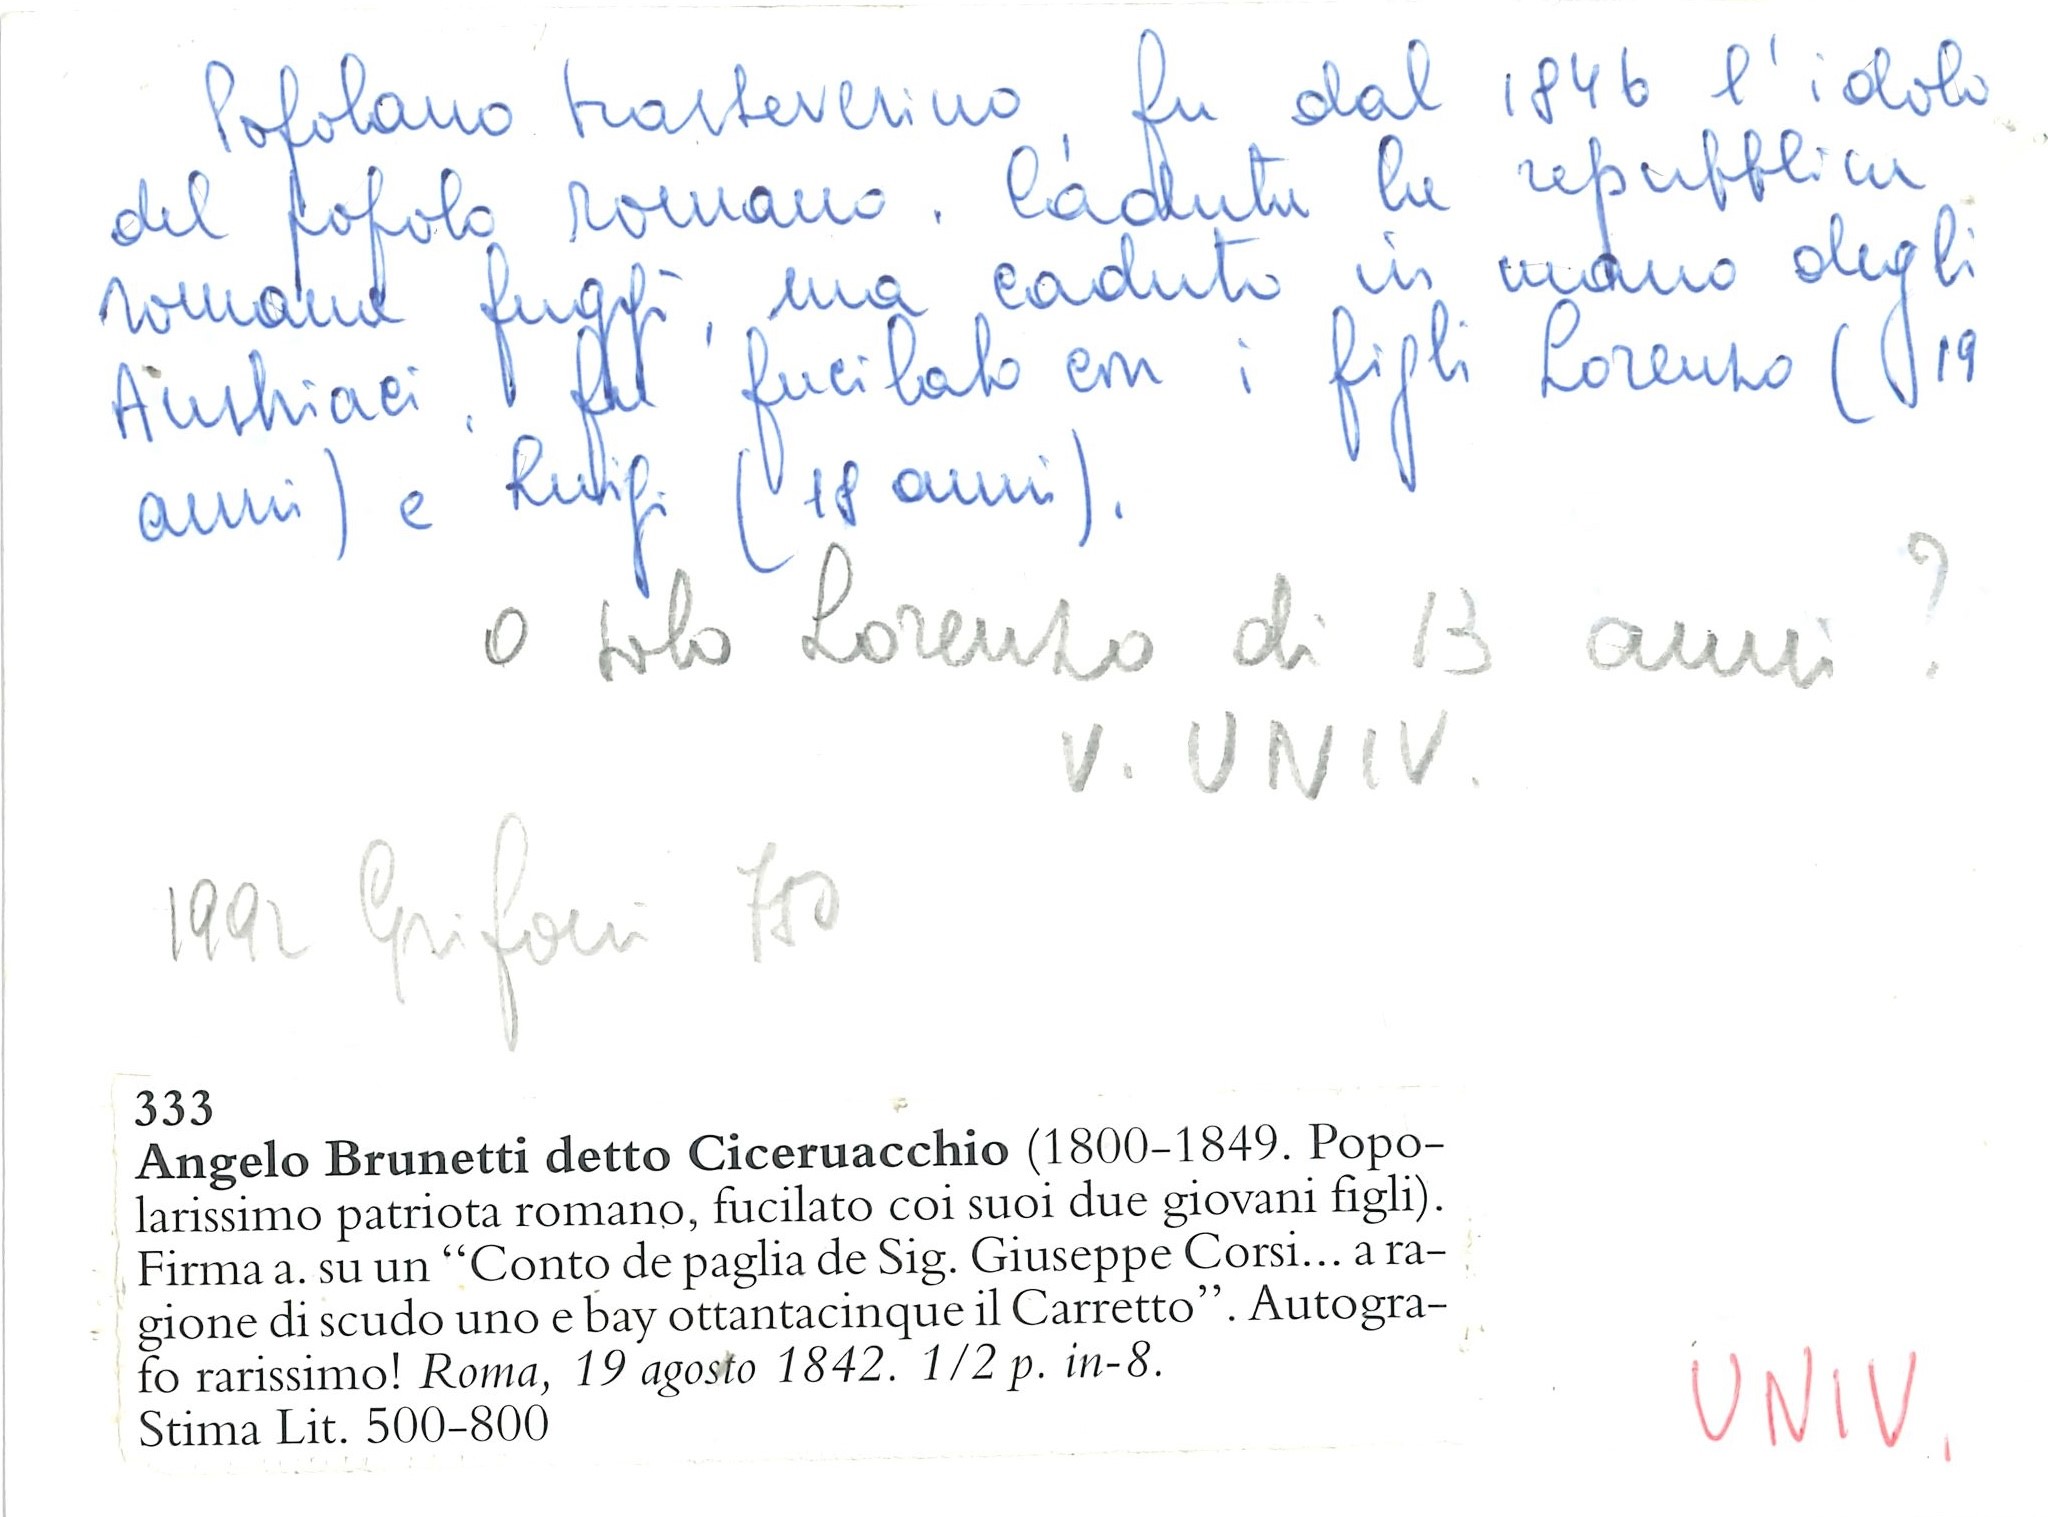 Popolano trasteverino, fu dal 1846 l'idolo
del popolo romano. Caduta la repubblica
romana fuggì, ma caduto in mano degli
Austriaci, fu fucilato con i figli Lorenzo (19
anni) e Luigi (18 anni).
O solo Lorenzo di 13 anni?
V. UNIV.
1992 Grifoni 750
333
Angelo Brunetti detto Ciceruacchio (1800-1849. Popo-
larissimo patriota romano, fucilato coi suoi due giovani figli).
Firma a. su un “Conto de paglia de Sig. Giuseppe Corsi... a ra-
gione di scudo uno e bay ottantacinque il Carretto”. Autogra-
fo rarissimo! Roma, 19 agosto 1842. 1/2 p. in-8.
Stima Lit. 500-800
UNIV.